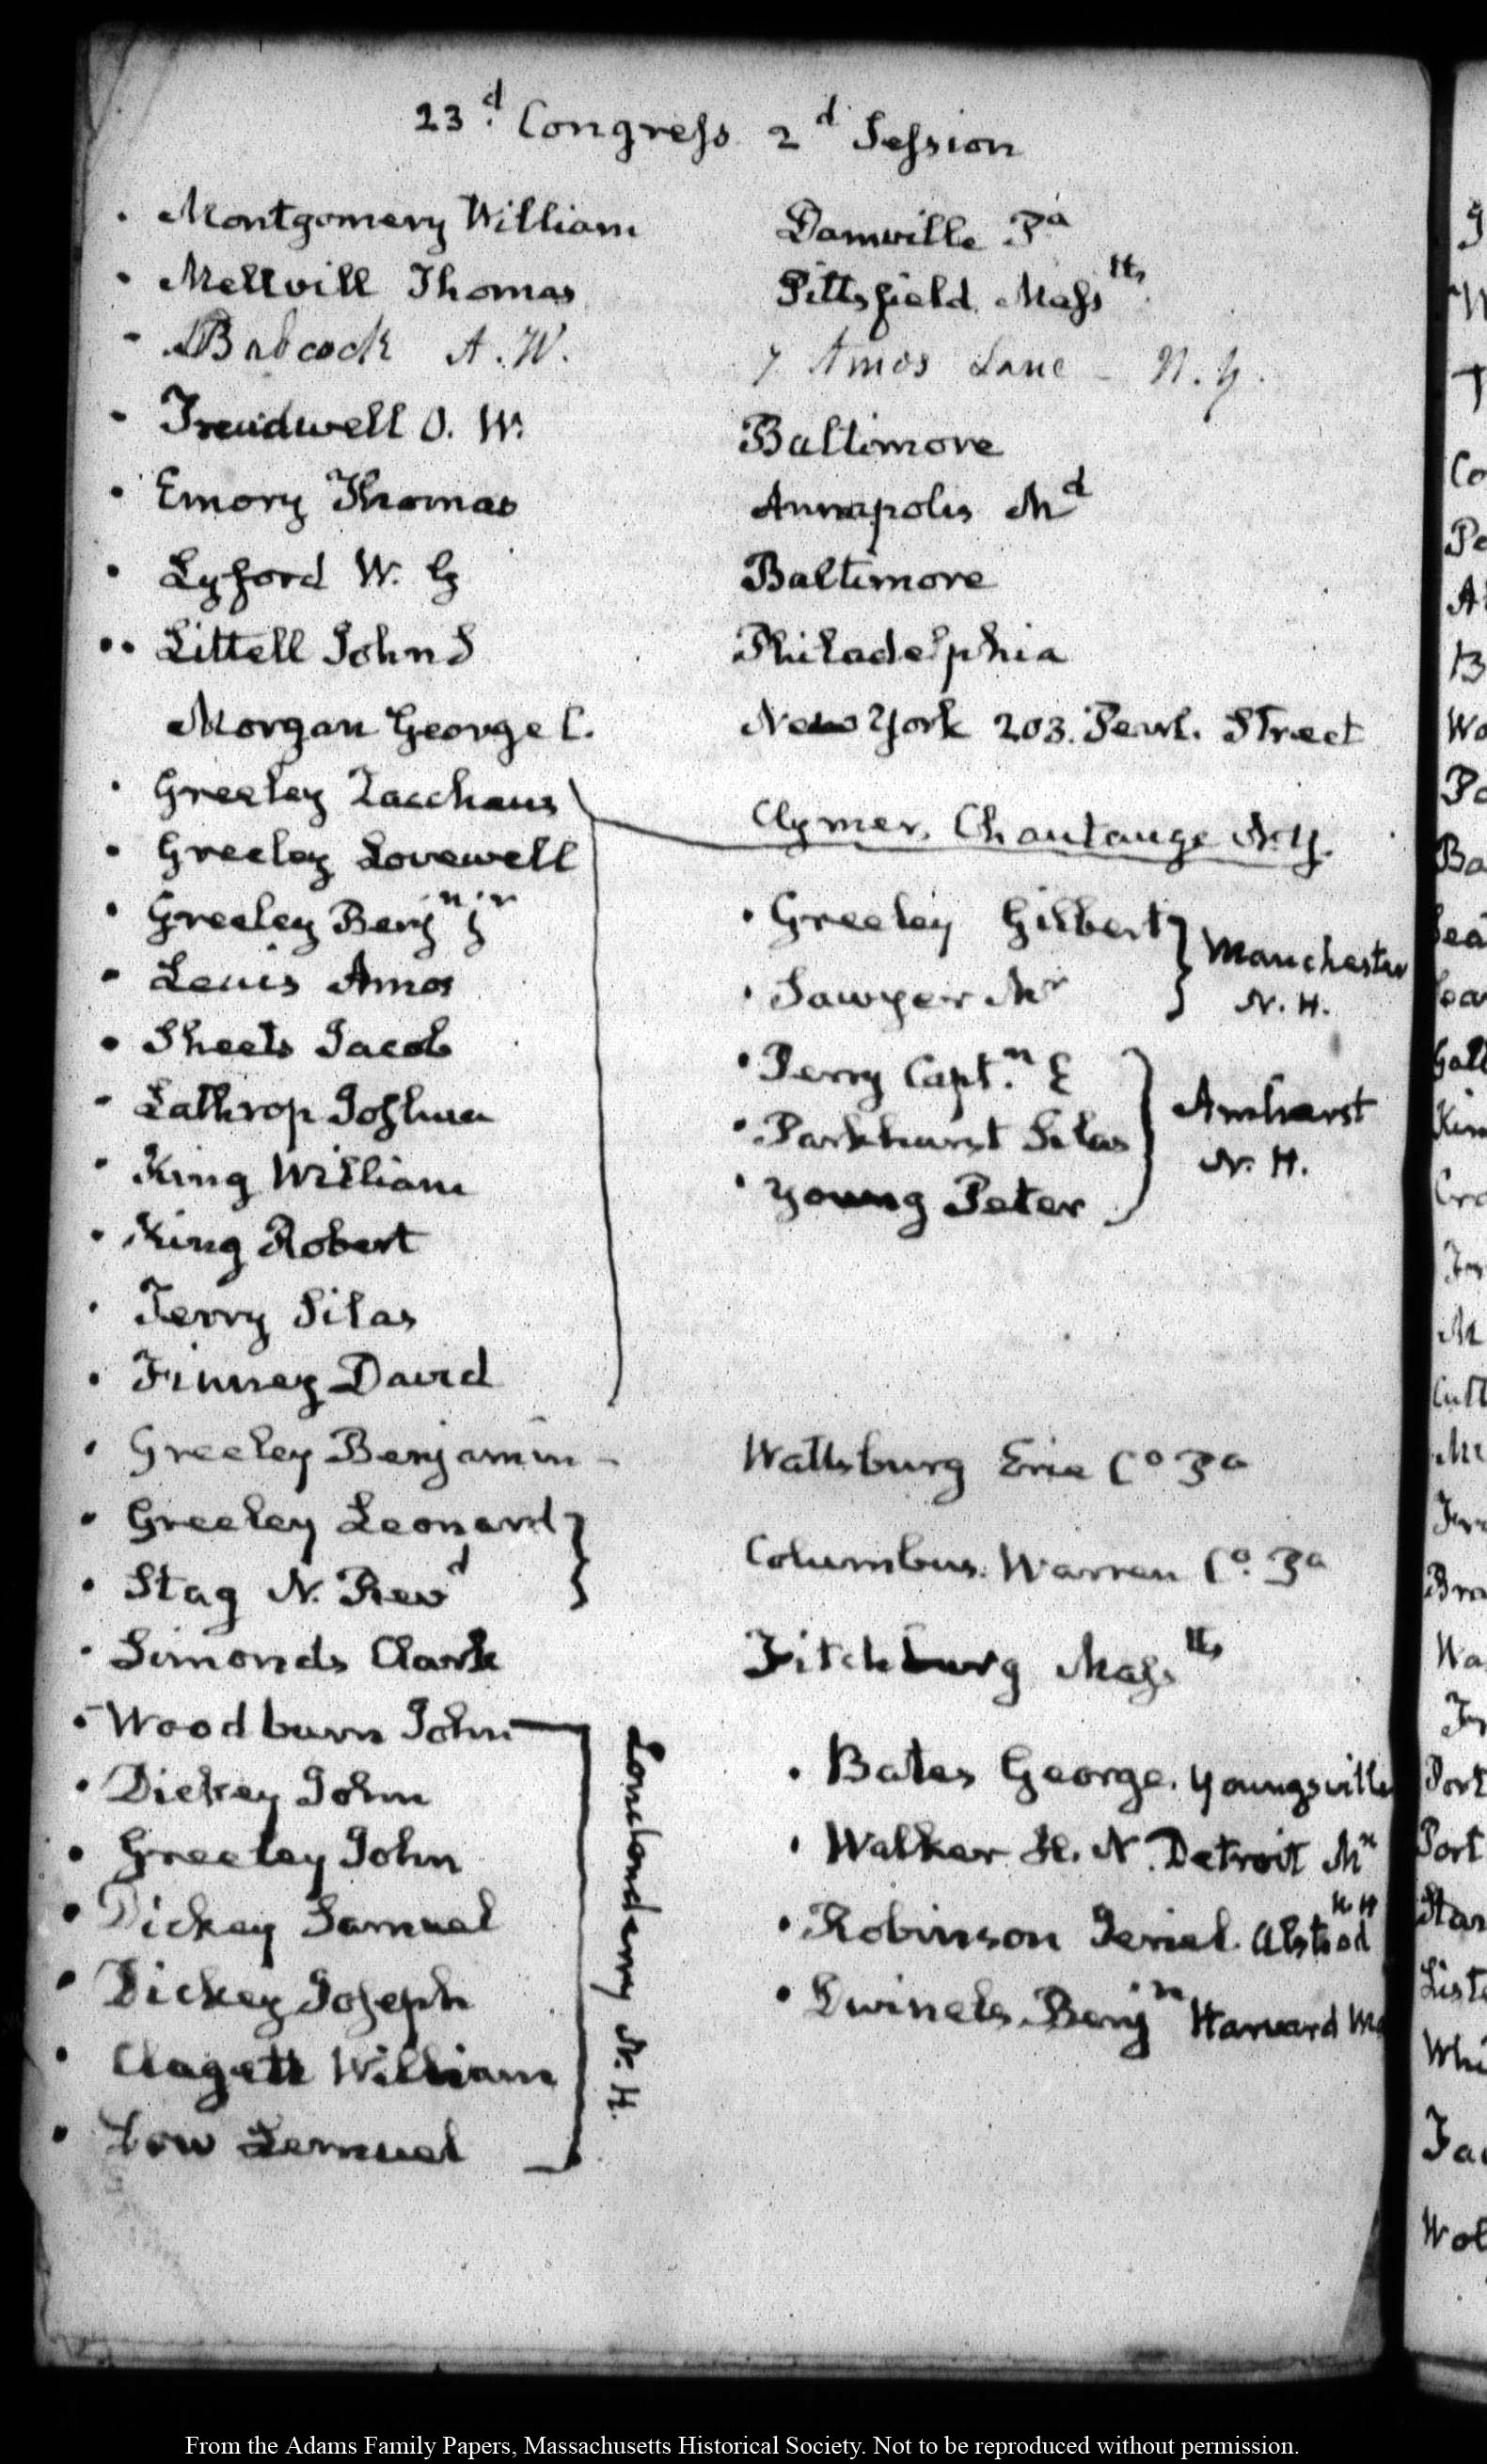 23.d Congress 2d Session
Montgomery William Danville Pa
Mellvill Thomas Pittsfield Masstts
Babcock A. W. 7 Amos Lane - N.Y.
Treadwell O. W. Baltimore
Emory Thomas Annapolis Md
Lyford W. G Baltimore
Littell John S Philadelphia
Morgan George C. New York 203. Pearl. Street
Greeley Zacchaus Clymer, Chautauge N.Y.
Greeley Lovewell
Greeley Benjn jr Greeley Gilbert } Manchester
Lewis Amos Sawyer Mr N. H.
Sheets Jacob
Lathrop Joshua Perry Capt.n E } Amherst
King William Parkhurst Silas N. H.
King Robert Young Peter
Terry Silas
Finney David
Greeley Benjamin - Wattsburg Erie Co Pa
Greeley Leonard } Columbus. Warren Co. Pa
Stag N. Revd
Simonds Clark Fitchburg Masstts
Woodburn John Londonderry N. H.
Dickey John Bates George. Youngsville
Greeley John Walker H. N. Detroit Mn
Dickey Samuel Robinson Alstead N H
Dickey Joseph Dwinels Benjn Harvard
Clagett William
Low Lemuel
From the Adams Family Papers, Massachusetts Historical Society. Not to be reproduced without permission.